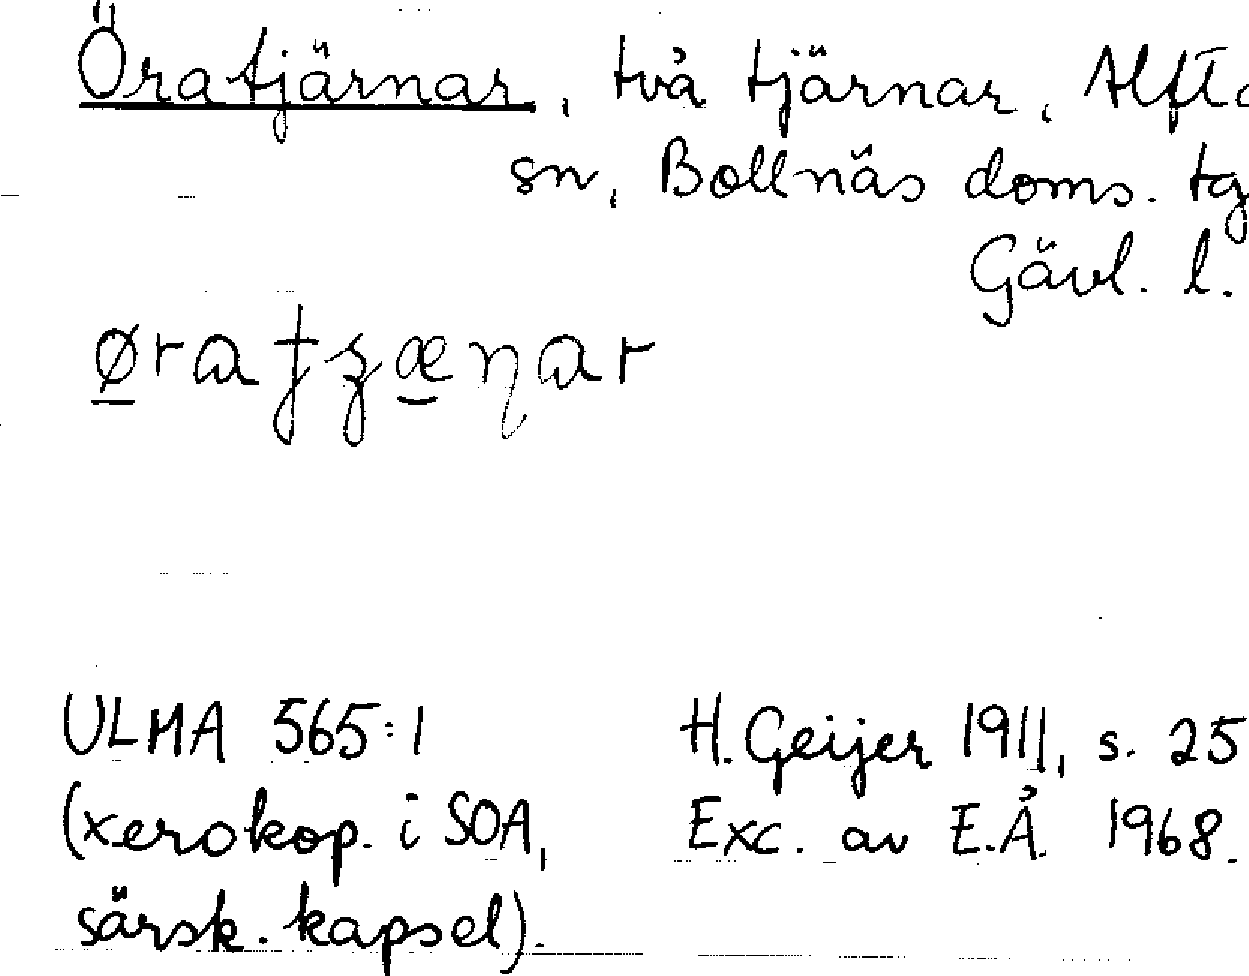 Öratjärnar, två tjärnar, Alfta
sn, Bollnäs doms. tg
Gävl. l.
ULMA 565:1
(xerokop. i SOA,
särsk. kapsel).
H. Geijer 1911, s. 25
Exc. av E.Å. 1968.